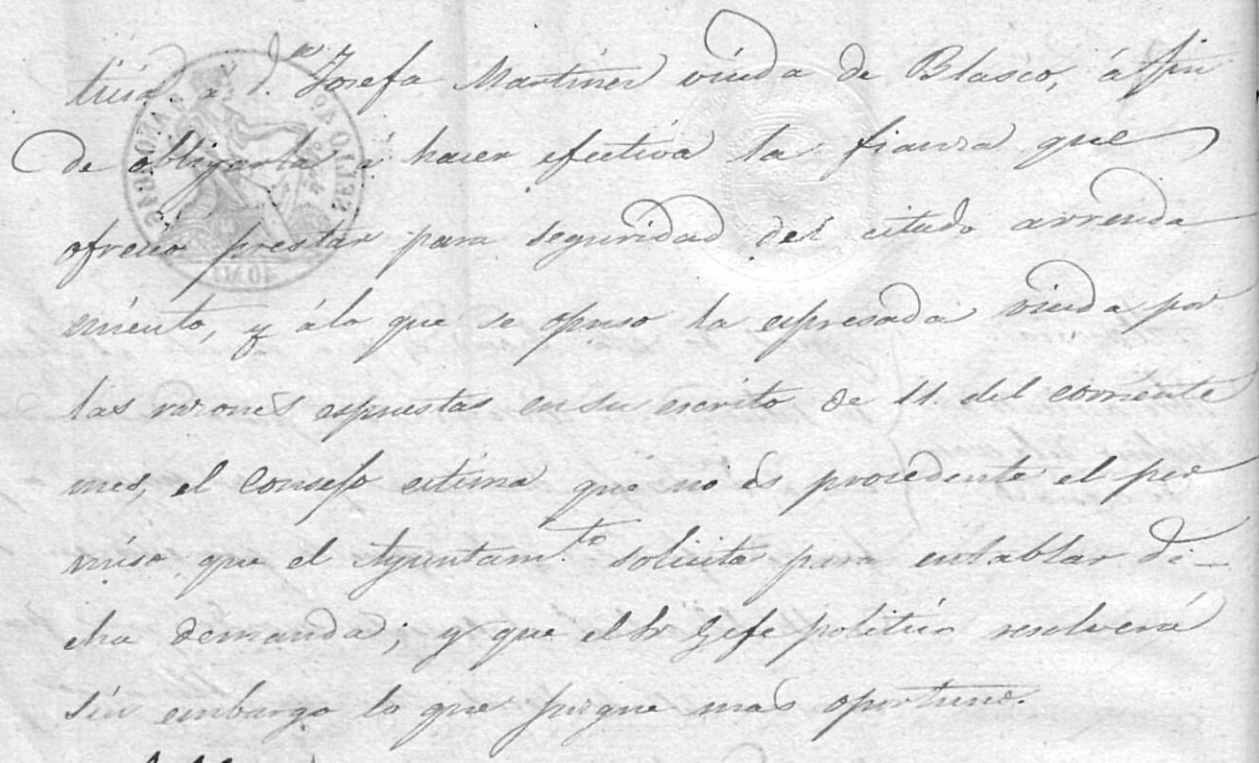 tiria a D.ª Josefa Martinez viuda de Blasco, á fin
de obligarla á hacer efectiva la fianza que
ofreció prestar para seguridad del citado arrenda
miento, y á lo que se opuso la espresada viuda por
las razones espuestas en su escrito de 11. del corriente
mes, el Consejo estima que no és procedente el per
miso que el Ayuntam.to solicita para entablar di-
cha demanda; y que el Sr Gefe politico resolverá
sin embargo lo que juzgue mas oportuno.